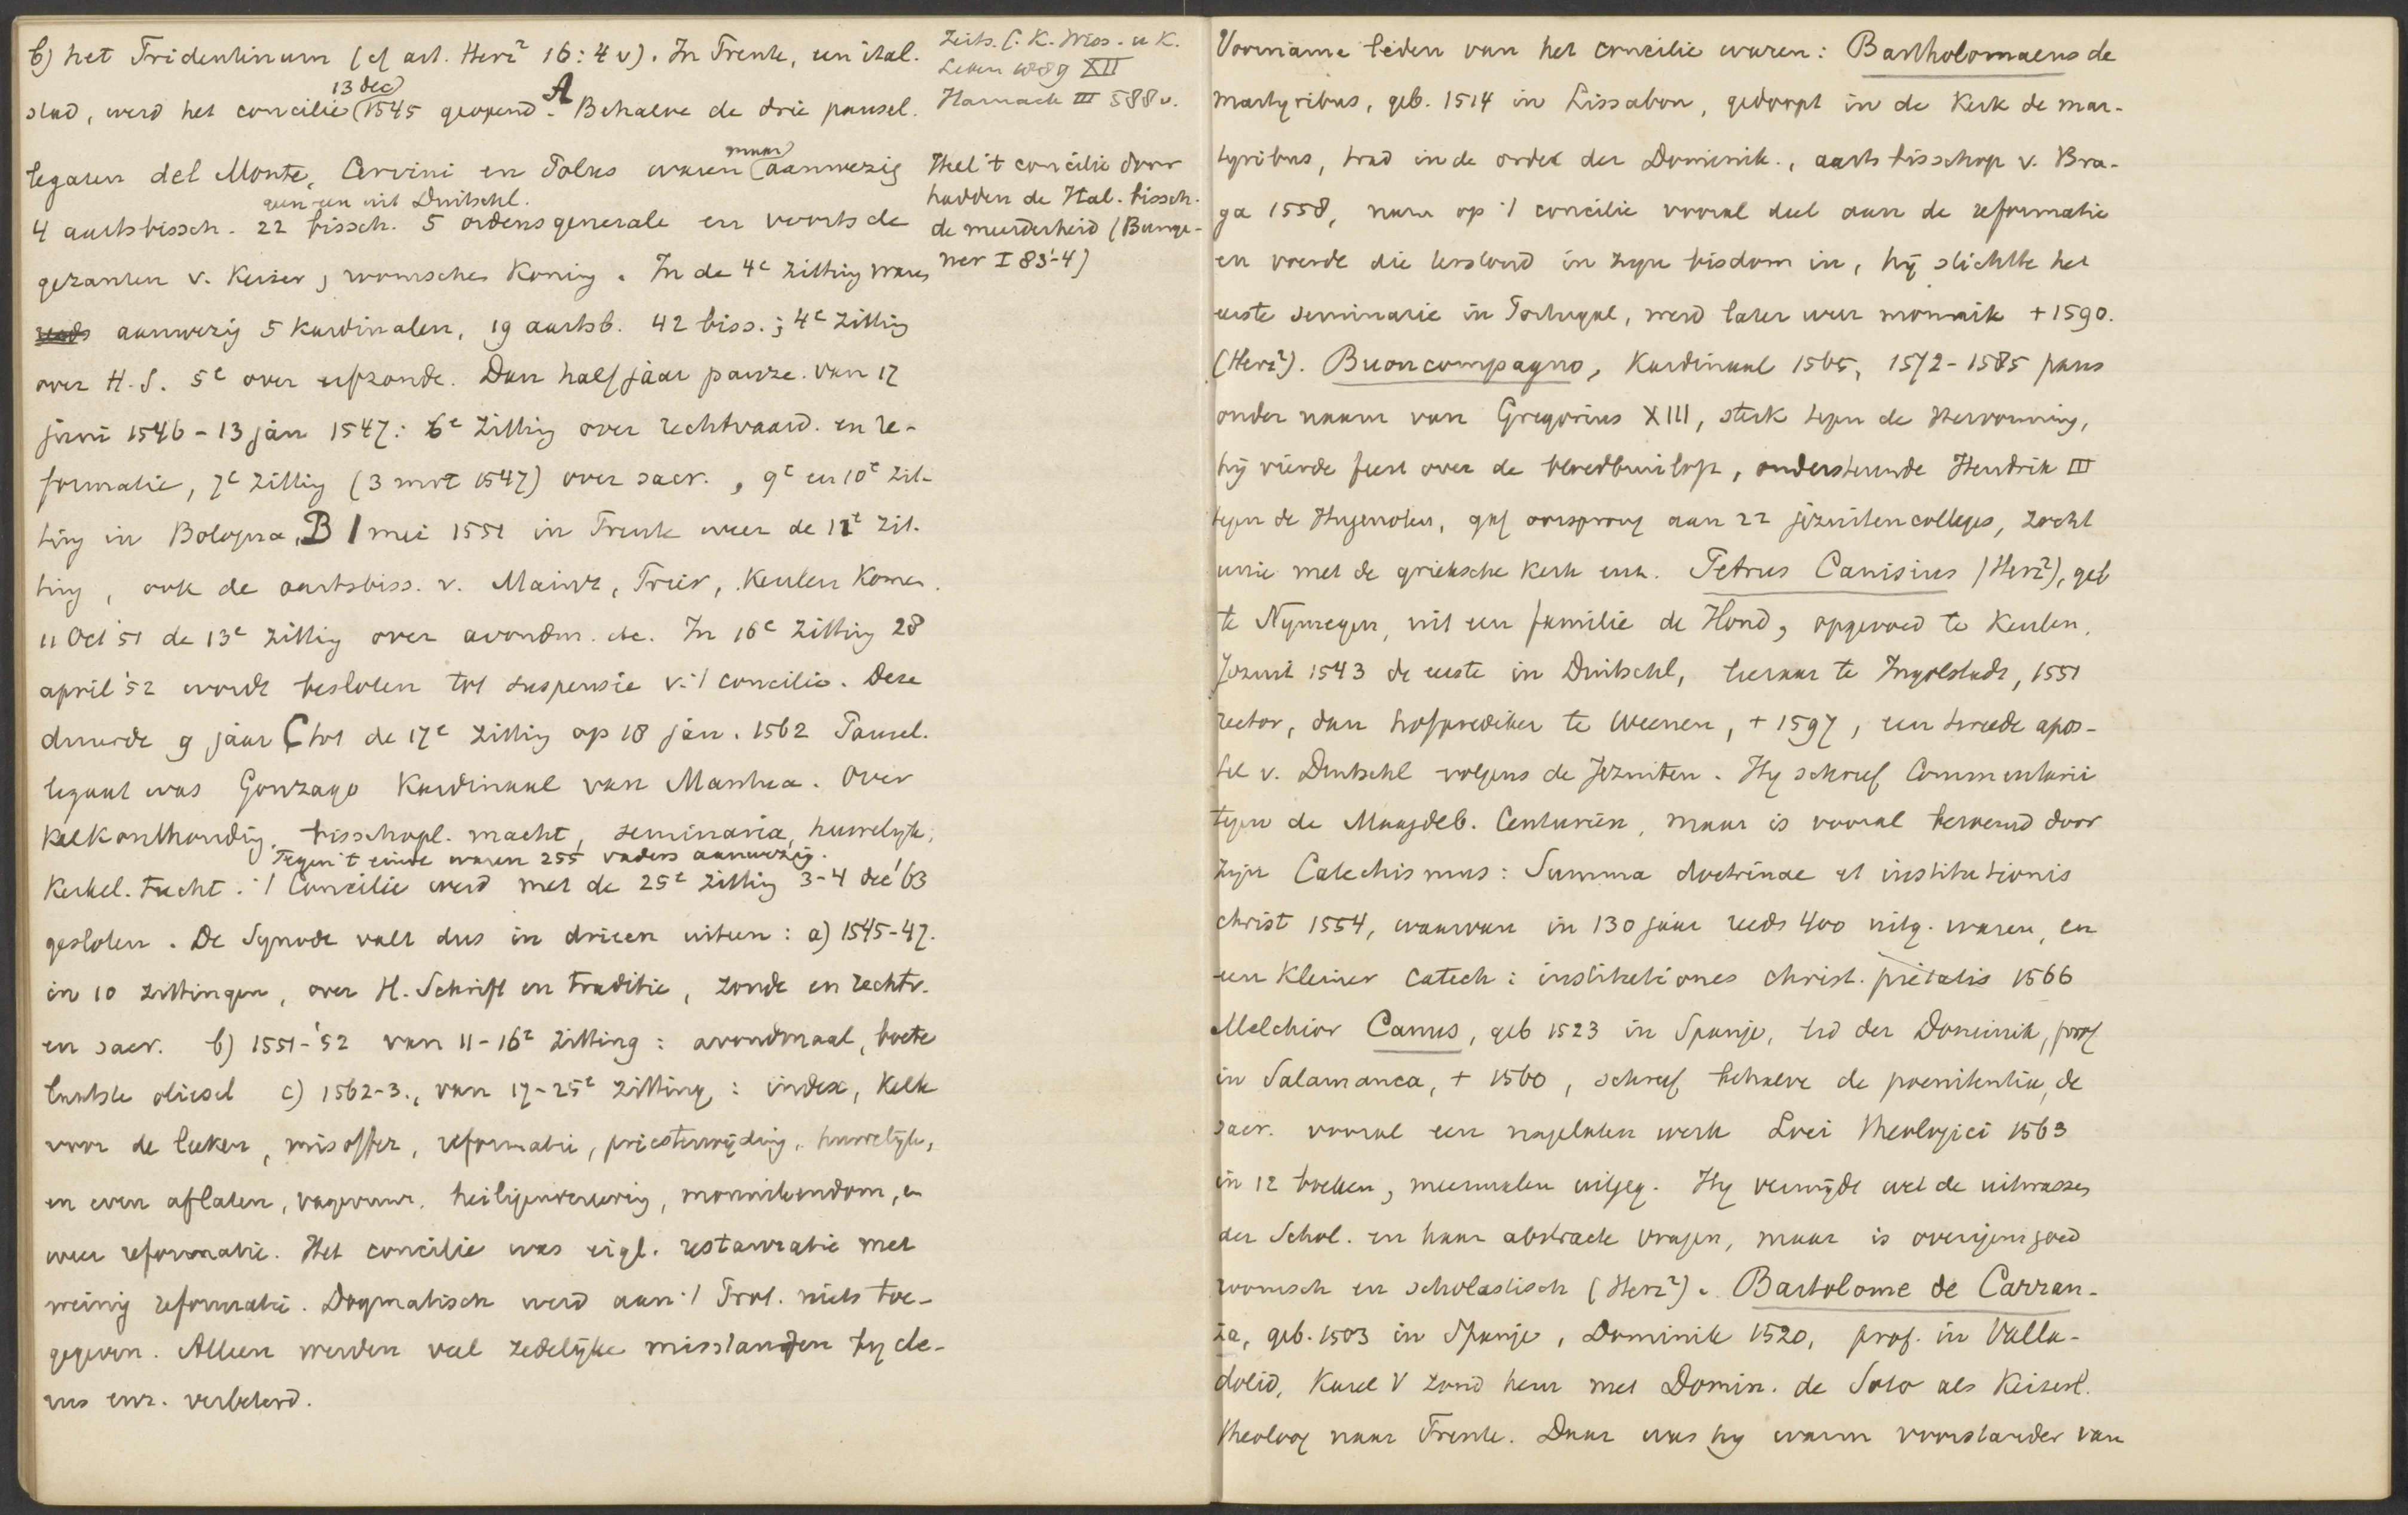 b) het Tridentinum (cf art. Herz² 16:4 v). In Trente, een ital.
13 dec
stad, werd het concilie 1545 geopend. A Behalve de drie pausel.
maar
legaten del Monte, Cervini en Polus waren aanwezig
geen een uit Duitschl.
4 aartsbissch. 22 bissch. 5 ordensgenerale en voorts de
gezanten v. Keizer, roomschen Koning. In de 4e zitting waren
reeds aanwezig 5 kardinalen, 19 aartsb. 42 biss.; 4e zitting
over H.S. 5e over erfzonde. Dan half jaar pauze. van 17
juni 1546 - 13 jan 1547: 6e zitting over rechtvaard. en re-
formatie, 7e zitting (3 mrt 1547) over sacr., 9e en 10e zit-
ting in Bologna, B 1 mei 1551 in Trente weer de 11e zit-
ting, ook de aartsbiss. v. Mainz, Trier, Keulen komen.
11 Oct '51 de 13e zitting over avondm. etc. In 16e zitting 28
april '52 wordt besloten tot suspensie v. 't concilie. Deze
duurde 9 jaar C tot de 17e zitting op 18 jan. 1562 Pausel.
legaat was Gonzago Kardinaal van Mantua. Over
Kelkonthouding, bisschopl. macht, seminaria, huwelijk,
Tegen 't einde waren 255 vaders aanwezig.
Kerkel. tucht. 't Concilie werd met de 25e zitting 3-4 dec '63
gesloten. De Synode valt dus in drieen uiteen: a) 1545-47.
in 10 zittingen, over H. Schrift en traditie, zonde en rechtv.
en sacr. b) 1551-'52 van 11-16e zitting: avondmaal, boete
laatste oliesel c) 1562-3., van 17-25e zitting: index, Kelk
voor de leeken, misoffer, reformatie, priesterwijding, huwelijk,
en even aflaten, vagevuur, heiligenvereering, monnikendom, en
weer reformatie. Het concilie was eigl. restauratie met
weinig reformatie. Dogmatisch werd aan 't Prot. niets toe-
gegeven. Alleen werden veel zedelijke misstanden by cle-
rus enz. verbeterd.
Zeits. f. K. Wiss. u K.
Leben 1889 XII
Harnack III 588 v.
Heel 't concilie door
hadden de Ital. bissch.
de meerderheid (Bunge-
ner I 83-4)
Voorname leden van het concilie waren: Bartholomaeus de
martyribus, geb. 1514 in Lissabon, gedoopt in de Kerk de mar-
tyribus, trad in de orde der Dominik., aartsbisschop v. Bra-
ga 1558, nam op 't concilie vooral deel aan de reformatie
en voerde die terstond in zyn bisdom in, hij stichtte het
eerste seminarie in Portugal, werd later weer monnik + 1590.
(Herz²). Buoncompagno, Kardinaal 1565, 1572-1585 paus
onder naam van Gregorius XIII, sterk tegen de Hervorming,
hij vierde feest over de bloedbruiloft, ondersteunde Hendrik III
tegen de Hugenoten, gaf oorsprong aan 22 jezuitencolleges, zocht
unie met de grieksche kerk enz. Petrus Canisius (Herz²), geb
te Nymegen, uit een familie de Hond, opgevoed te Keulen,
Jezuit 1543 de eerste in Duitschl, leeraar te Ingolstadt, 1551
rector, dan hofprediker te Weenen, + 1597, een tweede apos-
tel v. Duitschl volgens de Jezuiten. Hy schreef Commentarii
tegen de Maagdeb. Centuriën, maar is vooral beroemd door
zijn Catechismus: Summa doctrinae et institutionis
christ 1554, waarvan in 130 jaar reeds 400 uitg. waren, en
een kleiner catech: institutiones christ. pietatis 1566
Melchior Canus, geb 1523 in Spanje, lid der Dominik, prof
in Salamanca, + 1560, schreef behalve de poenitentia, de
sacr. vooral een nagelaten werk Loci theologici 1563
in 12 boeken, meermalen uitgeg. Hy vermijdt wel de uitwassen
der Schol. en haar abstracte vragen, maar is overigens goed
roomsch en scholastisch (Herz²). Bartolome de Carran-
za, geb. 1503 in Spanje, Dominik 1520, prof. in Valla-
dolid, Karel V zond hem met Domin. de Soto als Keizerl.
theoloog naar Trente. Daar was hy warm voorstander van